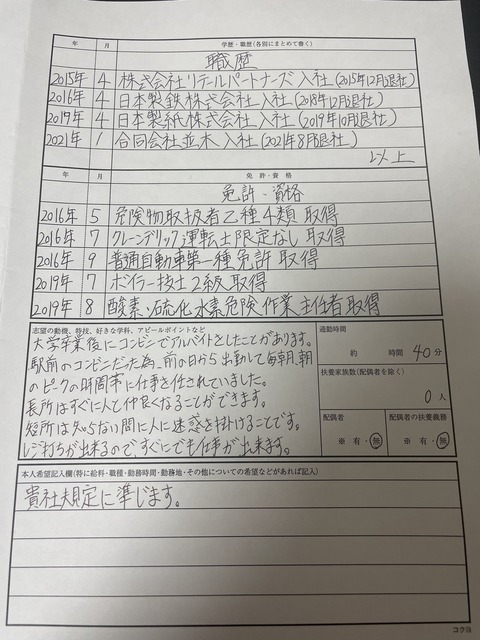 年 月 学歴・職歴(各別にまとめて書く)
職歴
2015年 4 株式会社リテールパートナーズ 入社 (2015年12月退社)
2016年 4 日本製鉄株式会社 入社 (2018年12月退社)
2019年 4 日本製紙株式会社 入社 (2019年10月退社)
2021年 1 合同会社並木 入社 (2021年8月退社)
以上
年 月 免許・資格
免許・資格
2016年 5 危険物取扱者乙種4類 取得
2016年 7 クレーンデリック運転士限定なし 取得
2016年 9 普通自動車第一種免許 取得
2019年 7 ボイラー技士2級 取得
2019年 8 酸素・硫化水素危険作業主任者取得
志望の動機、特技、好きな学科、アピールポイントなど
大学卒業後にコンビニでアルバイトをしたことがあります。
駅前のコンビニだった為、前の日から出勤して毎朝、朝
のピークの時間帯に仕事を任されていました。
長所はすぐに人と仲良くなることができます。
短所は知らない間に人に迷惑を掛けることです。
レジ打ちが出来るので、すぐにでも仕事が出来ます。
通勤時間
約 時間 40分
扶養家族数(配偶者を除く)
0人
配偶者 配偶者の扶養義務
※ 有・無 ※ 有・無
本人希望記入欄(特に給料・職種・勤務時間・勤務地・その他についての希望などがあれば記入)
貴社規定に準じます。
コクヨ